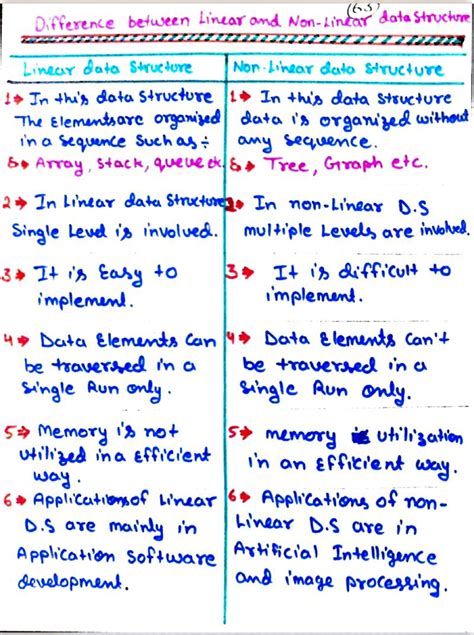 (6.5)
Difference between Linear and Non-Linear data Structure
Linear data Structure
Non-Linear data Structure
1→ In this data Structure
The Elements are organized
in a Sequence Such as ÷
Array, Stack, queue etc.
2→ In Linear data Structure
Single Level is involved.
3→ It is Easy to
implement.
4→ Data Elements Can
be traversed in a
Single Run only.
5→ Memory is not
utilized in a Efficient
way.
6→ Applications of Linear
D.S are mainly in
Application Software
development.
1→ In this data structure
data is organized without
any Sequence.
Tree, Graph etc.
2→ In non-Linear D.S
multiple Levels are involved.
3→ It is difficult to
implement.
4→ Data Elements Can't
be traversed in a
Single Run only.
5→ memory utilization
in an Efficient way.
6→ Applications of non-
Linear D.S are in
Artificial Intelligence
and image processing.